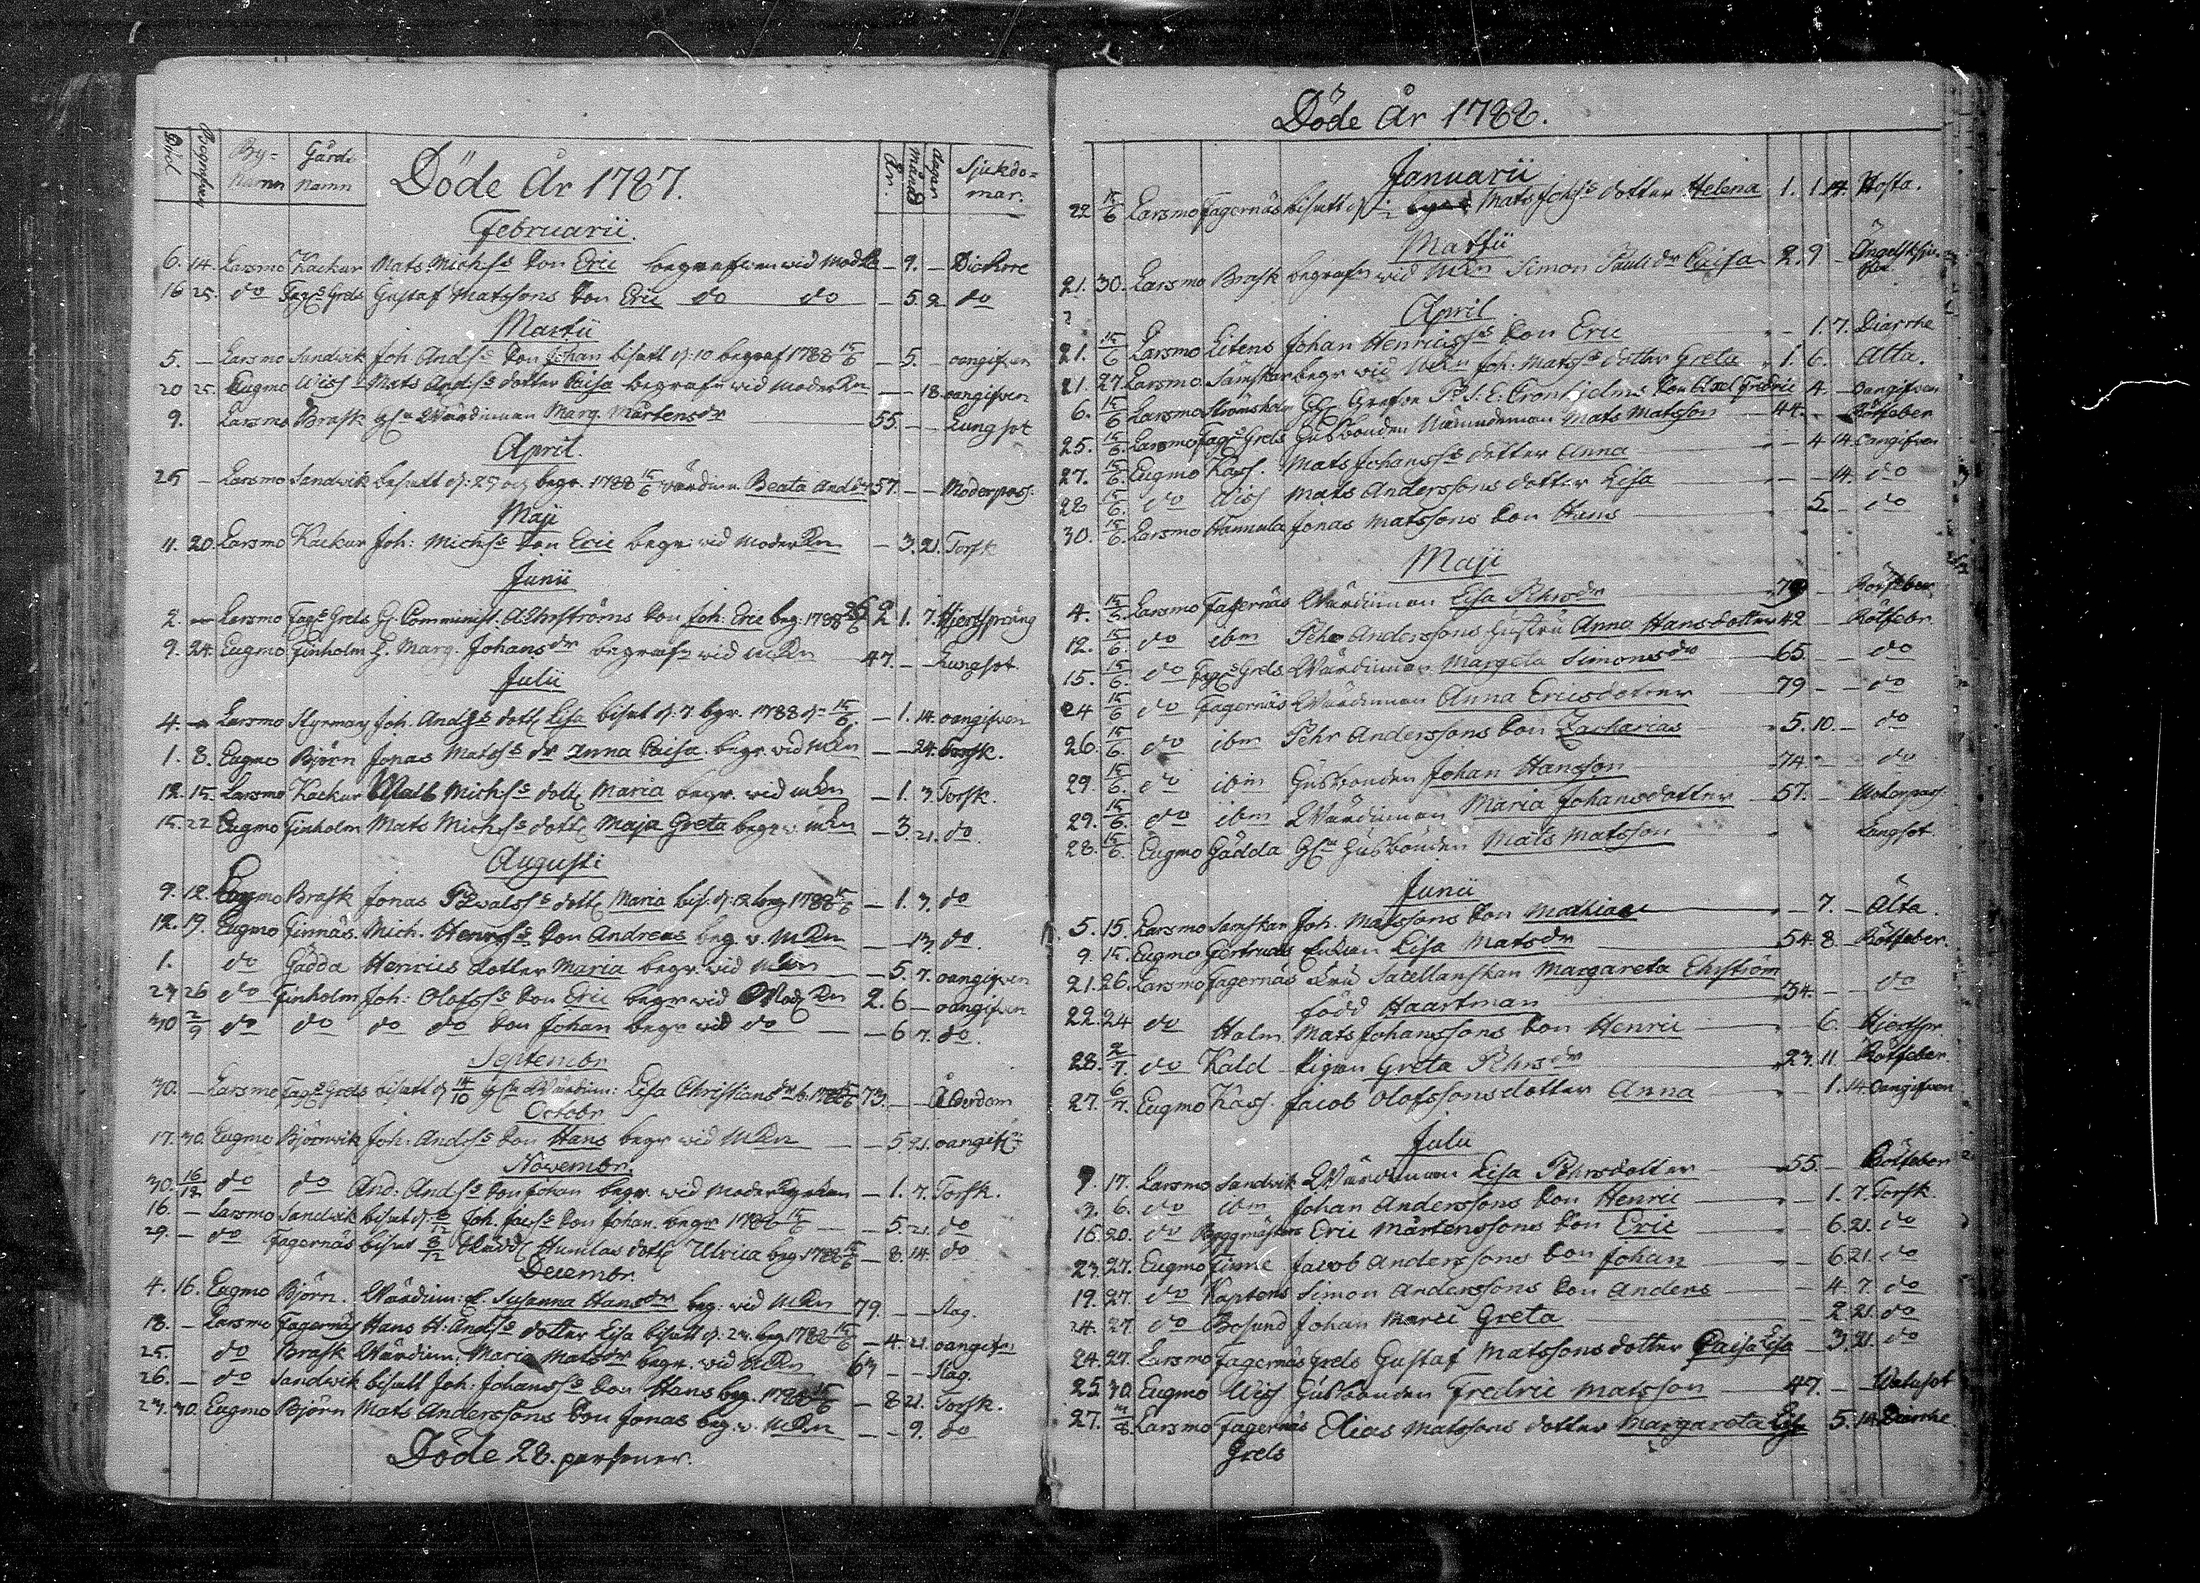 Död
Begrafven
By-namn
Gårds namn
Döde År 1787.
År.
Månad
dagar
Sjukdomar.
Februarii.
6. 14. Larsmo Kackur Mats Michss Son Eric begrafven wid ModK — 9. — Dickhore
16 25. do Fags Grels Gustaf Matssons Son Eric do do — 5. 2 do
Martii
5. — Larsmo Sandvik Joh. Andss Son Johan bisatt d. 10 begraf 1788 15/6 — 5. — oangifven
20 25. Eugmo Wiss Mats Andss dotter Caisa begrafn wid ModerKn — — 18. oangifven
9. Larsmo Brask Wärdinnan Marg. Mårtensdr 55. — — Lungsot
April.
25 — Larsmo Sandwik bisatt d. 27 och begr. 1788 15/6 wärdinn Beata Andsdr 57. — — Moderpass.
Maji
11. 20. Larsmo Kackur Joh: Michss Son Eric begr. wid ModerKn — 3. 21. Torsk
Junii
2. — Larsmo Fags Grels Comminist. Son Joh: Eric beg. 1788 2. 1. 7. Hjertsprång
9. 24. Eugmo Finholm H. Marg. Johansdr begrafn wid MKn 47. — Lungsot.
Julii
4. — Larsmo Styrman Joh. Andss dott. Lisa bisat d. 7 begr. 1788 d. 15/6. — 1. 14. oangifven
1. 8. Eugmo Björn Jonas Matss dr Anna Caisa begr. wid MKn — — 24. Torsk.
12. 15. Larsmo Kackur Matts Michss dott. Maria begr. wid MKn — 1. 3. Torsk.
15. 22 Eugmo Finholm Mats Michss dott. Maja Greta begr. v. MKn — 3 21. do.
Augusti
9. 12. Eugmo Brask Jonas dott. Maria bis. d. 12 beg. 1788 15/6 — 1. 3. do
12. 19. Eugmo Finnäs. Mich. Henrss Son Andreas beg. v. MKn — — 13. do.
1. do Gädda Henrics dotter Maria begr. wid MKn — 5. 7. oangifven
23 26 do Finholm Joh: Olofss Son Eric begr. wid Mod. Kn 2. 6 — oangifven
30 2/9 do do do do Son Johan begr. wid do — 6 7. do.
Septembr
30. — Larsmo Fags Grels bisatt d. 14/10 Wärdinn: Lisa Christiansdr b. 1788 15/6 73. — — Ålderdom
Octobr
17. 30. Eugmo Björnvik Joh: Andss Son Hans begr. wid MKn — 5 21. oangifn
Novembr.
30. 16/12 do do And: Andss Son Johan begr. wid Moderkyrkan — 1. 7. Torsk.
16. — Larsmo Sandwik bisatt d. 8/12 Joh. Jacss Son Johan. begr 1788 15/6 — 5. 21. do
29. — do Fagernäs bisat 8/12 Humlas dott. Ulrica beg. 1788 15/6 — 8. 14. do
Decembr.
4. 16. Eugmo Björn. Wärdinn: E. Susanna Hansdr beg. wid MKn 79. — — Slag.
18. — Larsmo Fagernäs Hans H: Andss dotter Lisa bisatt d. 23. beg. 1788 15/6 — 4. 21. oangifn
25. do Brask Wärdinn: Maria Matsdr begr. wid MKn 63 — — Slag.
26. — do Sandwik bisatt Joh: Johanss Son Hans beg. 1788 15/6 — 8 21. Torsk.
23. 30. Eugmo Björn Mats Anderssons Son Jonas beg. v. MKn — — 9. do
Döde 28. personer.
Döde År 1788.
Januarii
22 15/6 Larsmo Fagernäs bisatt Mats Johss dotter Helena 1. 1. 14. Hosta.
Martii
21. 30. Larsmo Brask begrafn wid MKn Simon Pauli dr Caisa 2. 9 —
April
21. 15/6 Larsmo Litens Johan Henricss Son Eric — 1. 7. Diarrhe
21. 27 Larsmo Sämskar begr. wid MKn Joh: Matss dotter Greta 1. 6. Ålta.
6. 15/6 Larsmo Strömsholm Grefve Cronhjelms Son Axel Fredric 4. — oangifven
25. 15/6. Larsmo Fags Grels Husbonden Nämndeman Mats Matsson 44. — Rötfeber
27. 15/6. Eugmo Kass. Mats Johanss dotter Anna — 4. 14. oangifven
28 15/6. do Wiss Mats Anderssons dotter Lisa — — 14. do
30. 15/6. Larsmo Hannula Jonas Matssons Son Hans 5. — do
Maji
4. 15/6. Larsmo Fagernäs Wärdinnan Lisa Pehrsdr 79 — Rötfeber.
12. 15/6. do ibm Pehr Anderssons hustru Anna Hansdotter 42 — Rötfebr.
15. 15/6. do Fags Grels Wärdinnan Margeta Simonsdr 65. — — do
24 15/6 do Fagernäs Wärdinnan Anna Ericsdotter 79 — — do
26. 15/6. do ibm Pehr Anderssons Son Zacharias 5. 10. — do
29. 15/6. do ibm Husbonden Johan Hansson 74 — do
29. 15/6. do ibm Wärdinnan Maria Johansdotter 57. — Moderpass.
28. 15/6. Eugmo Gädda Husbonden Mats Matsson Lungsot.
Junii
5. 15. Larsmo Samskar Joh. Matssons Son Mathias — 7. — Älta.
9. 15. Eugmo Gertruds Enkan Lisa Matsdr 54. 8. — Rötfeber.
21. 26. Larsmo Fagernäs Fru Sacellanskan Margareta Ehrström
född Haartman 34. — — do
22. 24 do Holm Mats Johanssons Son Henric — 6. Hjertspr
28. 2/7. do Kald Pigan Greta Pehrsdr 23. 11. Rötfeber
27. 6/7. Eugmo Kass. Jacob Olofssons dotter Anna — 1. 14. oangifven
Julii
9. 17. Larsmo Sandwik Wärdinnan Lisa Pehrsdotter 55. — Rötfeber
3. 6. do ibm Johan Anderssons Son Henric — 1. 7. Torsk.
16. 20. do Byggmästers Eric Mårtenssons Son Eric — 6. 21. do
23. 27. Eugmo Finne Jacob Anderssons Son Johan — 6. 21. do
19. 27. do Kaptens Simon Anderssons Son Anders — 4. 7. do
24. 27. do Bosund Johan Greta 2. 21. do
24. 27. Larsmo Fagernäs Grels Gustaf Matssons dotter Caisa Lisa — 3. 21. do
25. 30. Eugmo Wiss Husbonden Fredric Matsson 47. — — Watusot
27. Larsmo Fagernäs Grels Elias Matssons dotter Margareta Lisa 5. 14. Diarrhe